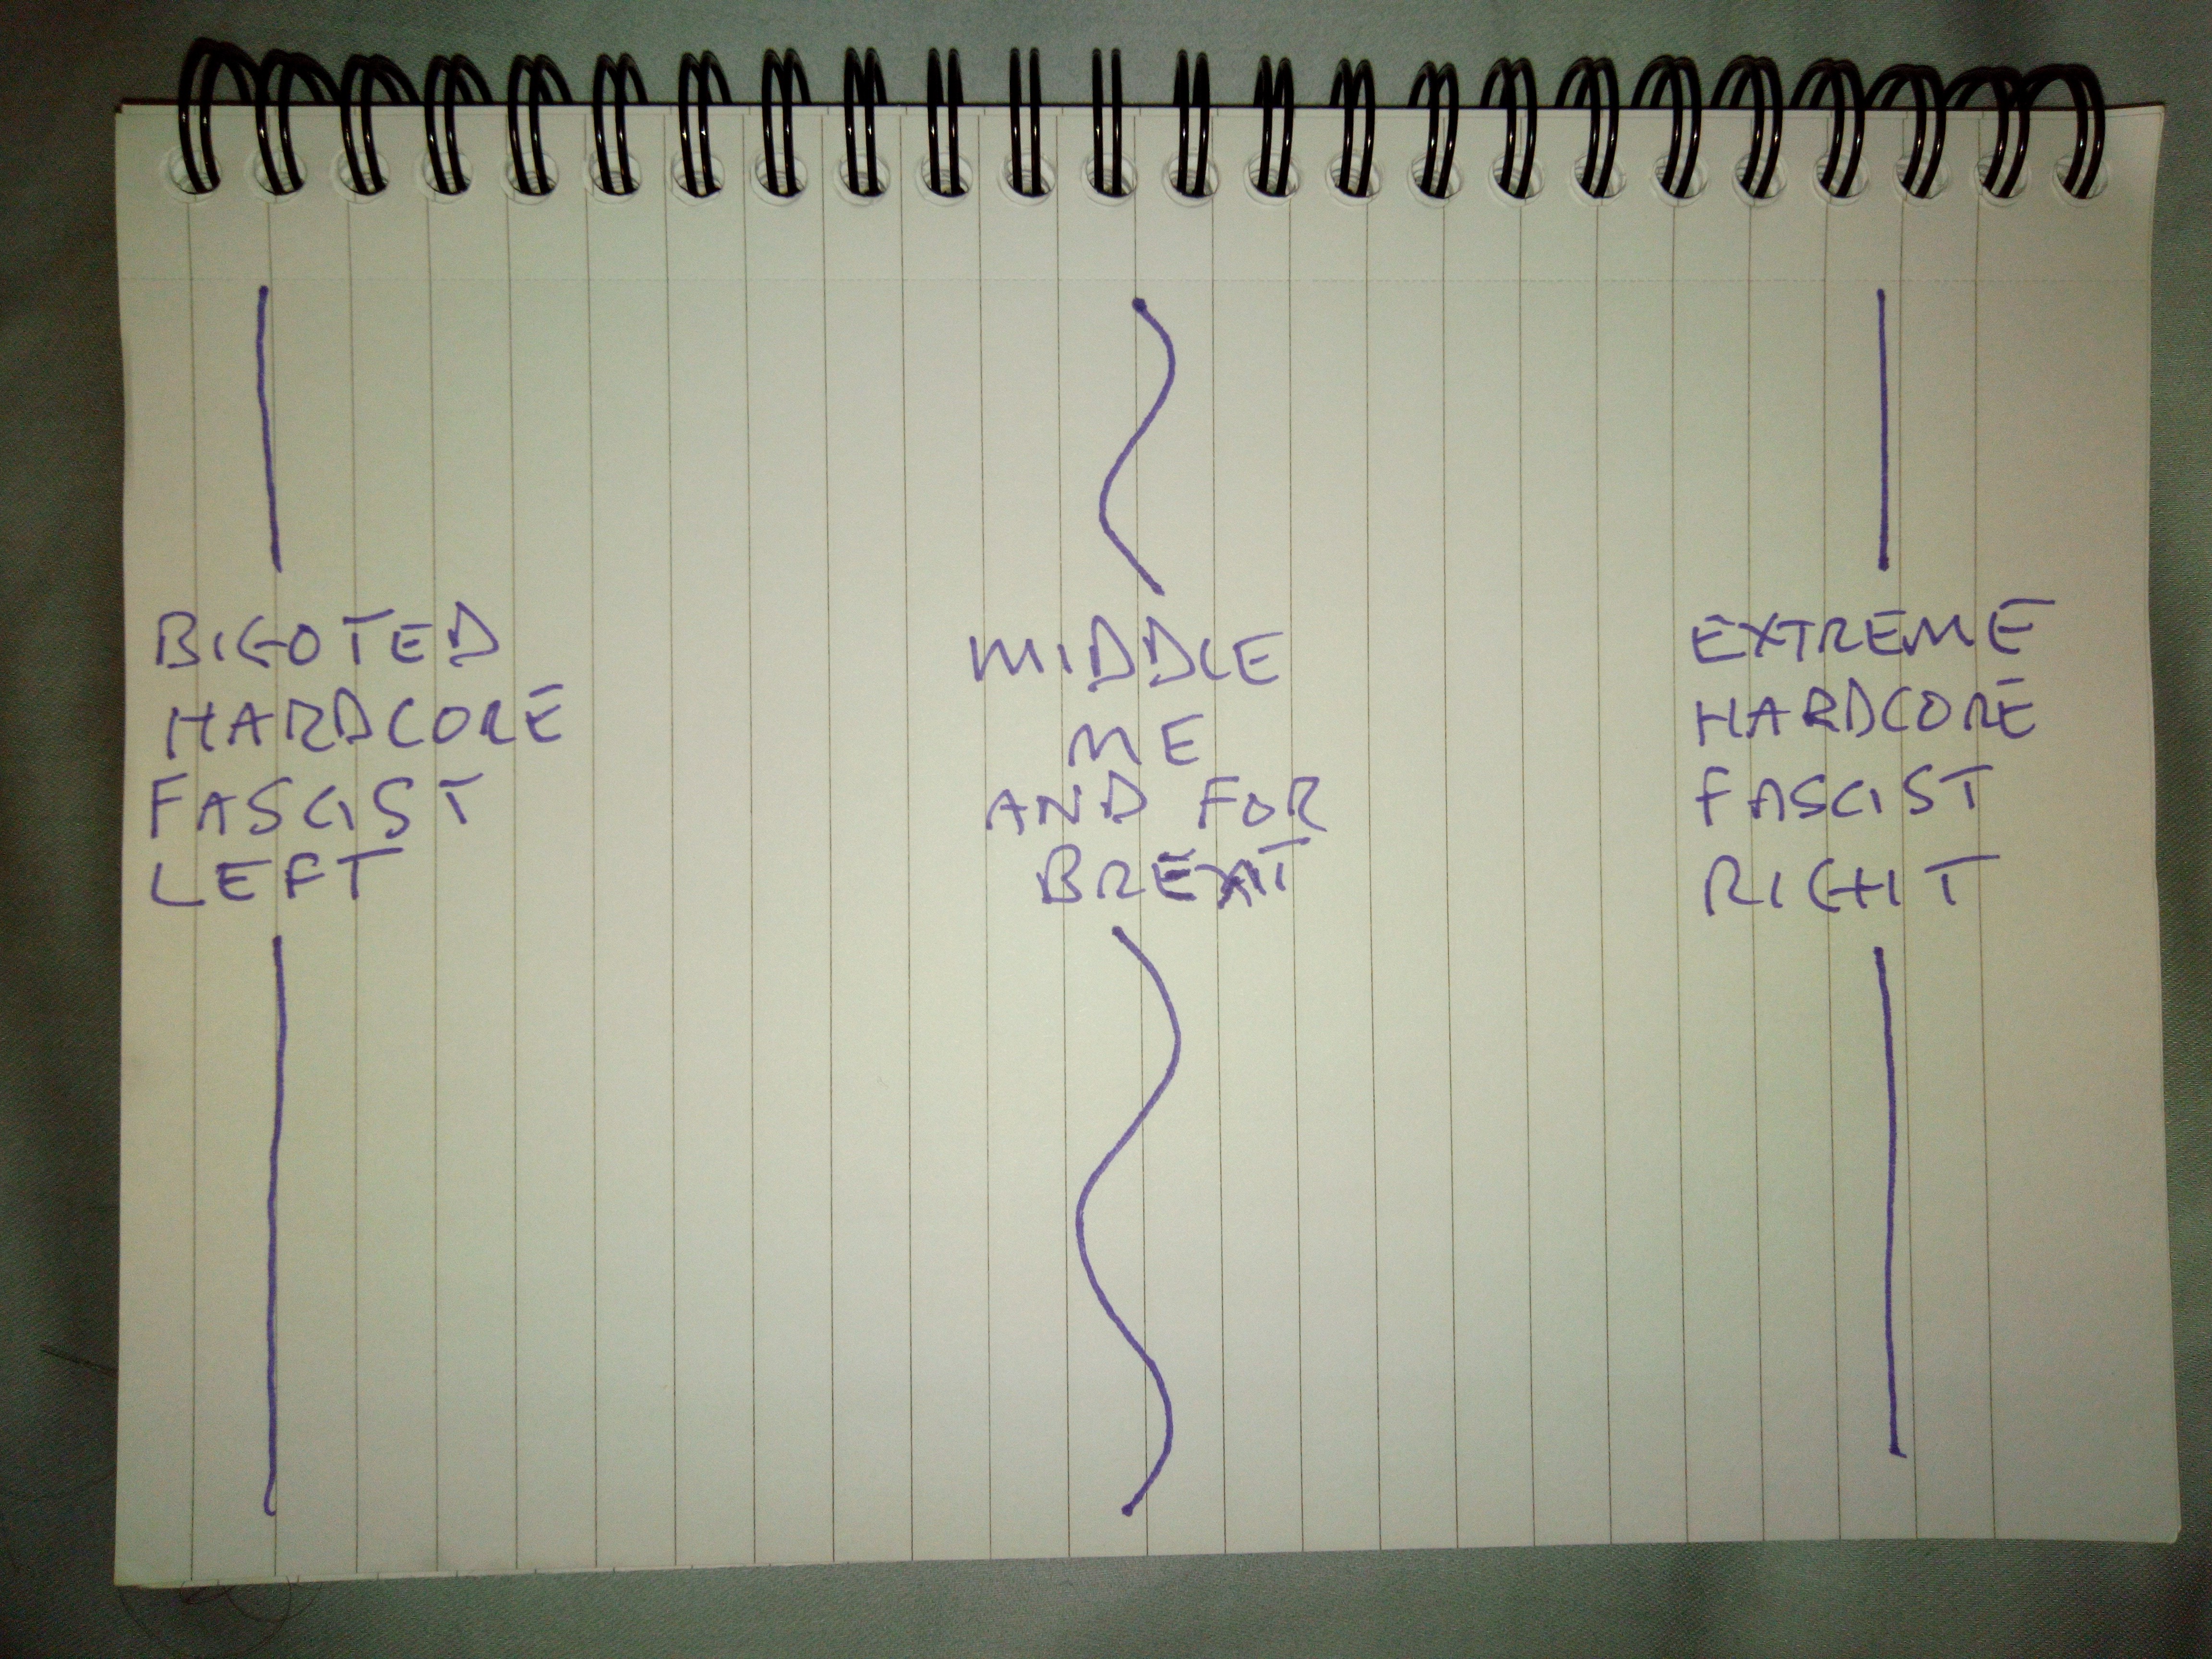 BIGOTED
HARDCORE
FASCIST
LEFT
MIDDLE
ME
AND FOR
BREXIT
EXTREME
HARDCORE
FASCIST
RIGHT